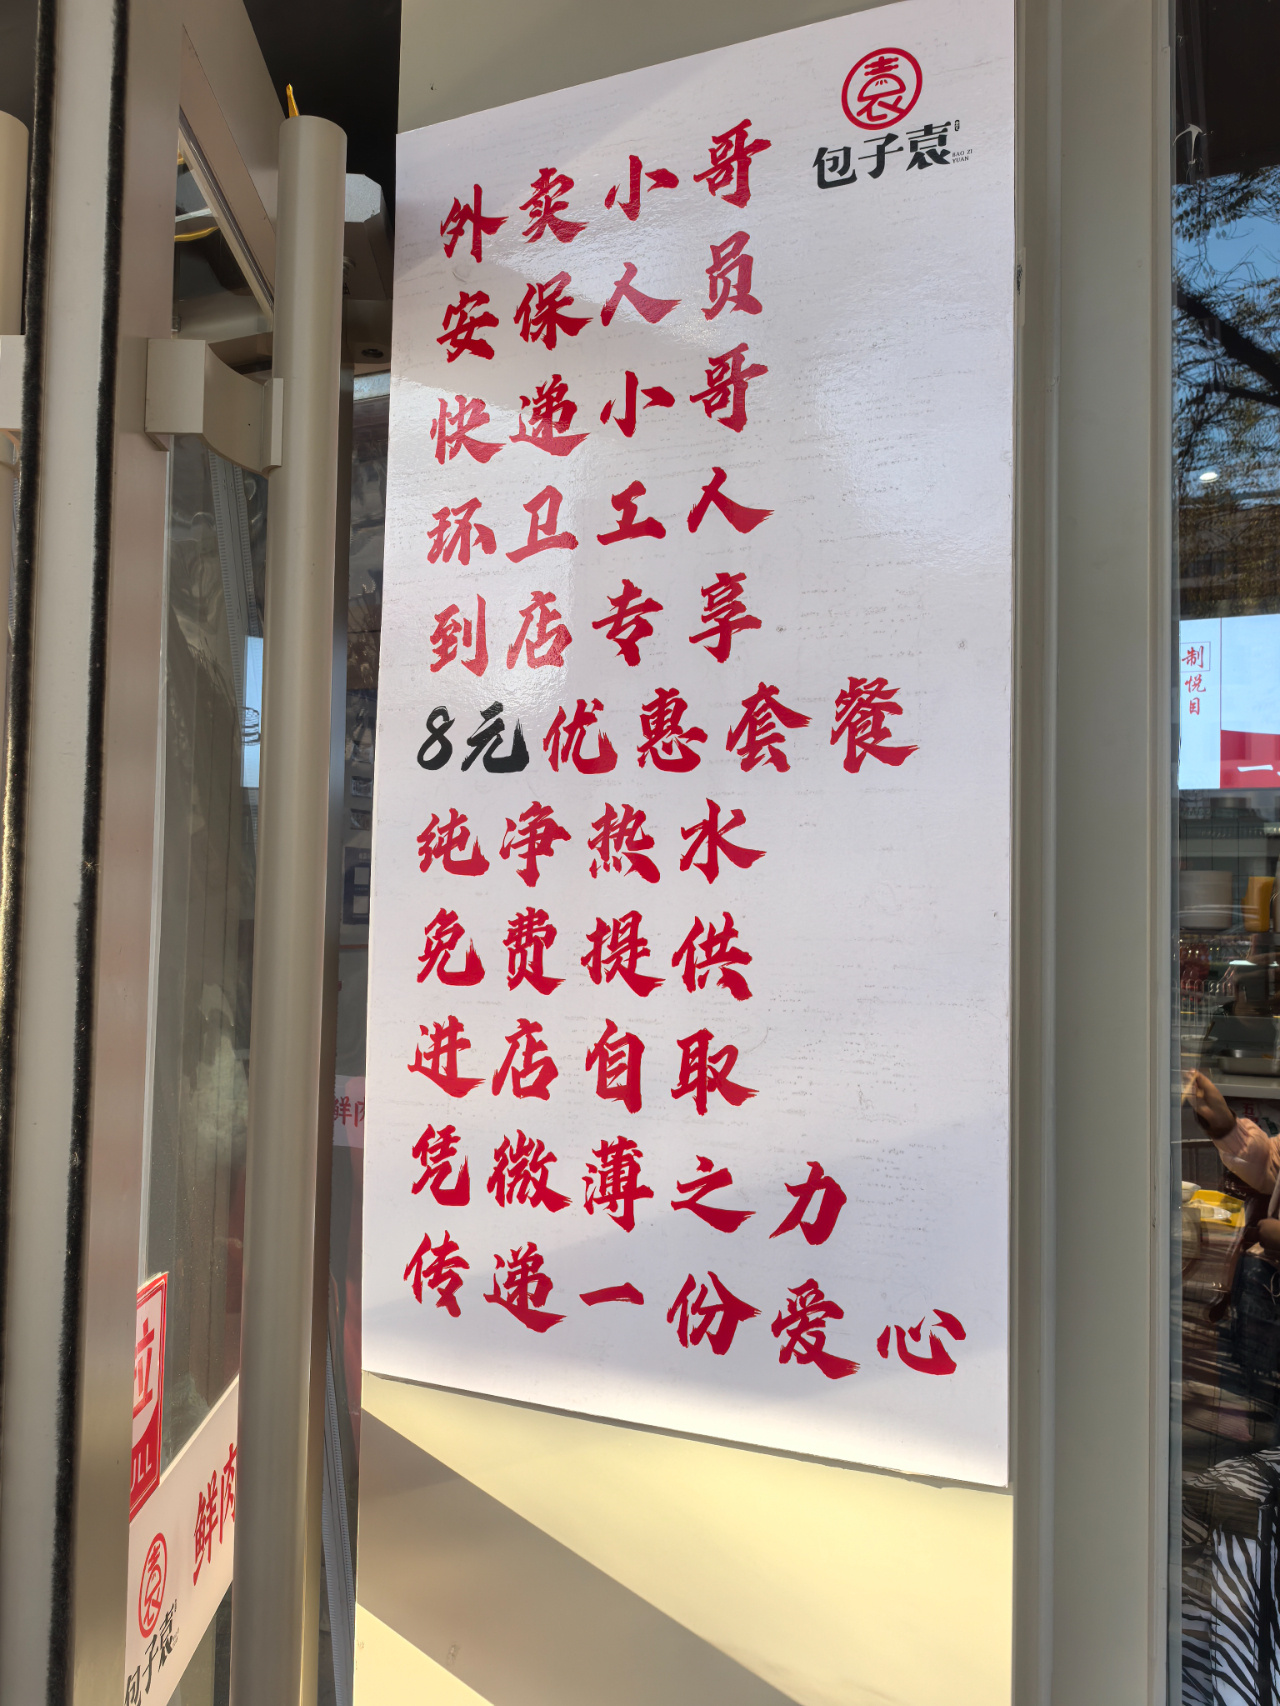 袁
包子袁
BAO ZI
YUAN
外卖小哥
安保人员
快递小哥
环卫工人
到店专享
8元优惠套餐
纯净热水
免费提供
进店自取
凭微薄之力
传递一份爱心
制
悦
目
一
鲜肉
拉
鲜肉
袁
包子袁